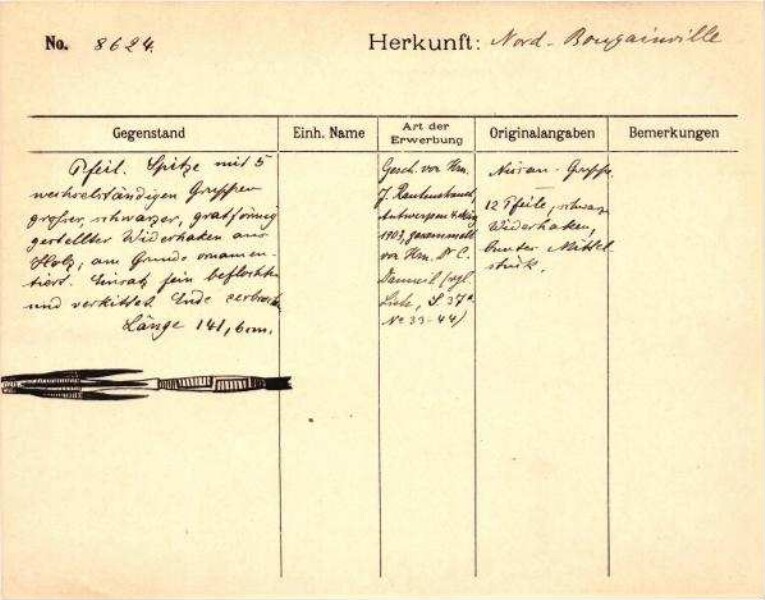 No. 8624.
Herkunft: Nord-Bougainville
Gegenstand
Einh. Name
Art der Erwerbung
Originalangaben
Bemerkungen
Pfeil. Spitze mit 5
wechselständigen Gruppen
großer, schwarzer, gratförmig
gestellter Widerhaken aus
Holz, am Grunde ornamen-
tiert. Einsatz fein beflochten
und verkittet. Ende zerbrochen
Länge 141,6cm.
Gesch. von Hrn.
J. Rautenstrauch,
Antwerpen 4. März
1903, gesammelt
von Hrn. Dr C.
(vgl.
Liste, S 37a
No 33-44)
Nissan-Gruppe.
12 Pfeile, schwarze
Widerhaken,
bunter Mittel-
stück.